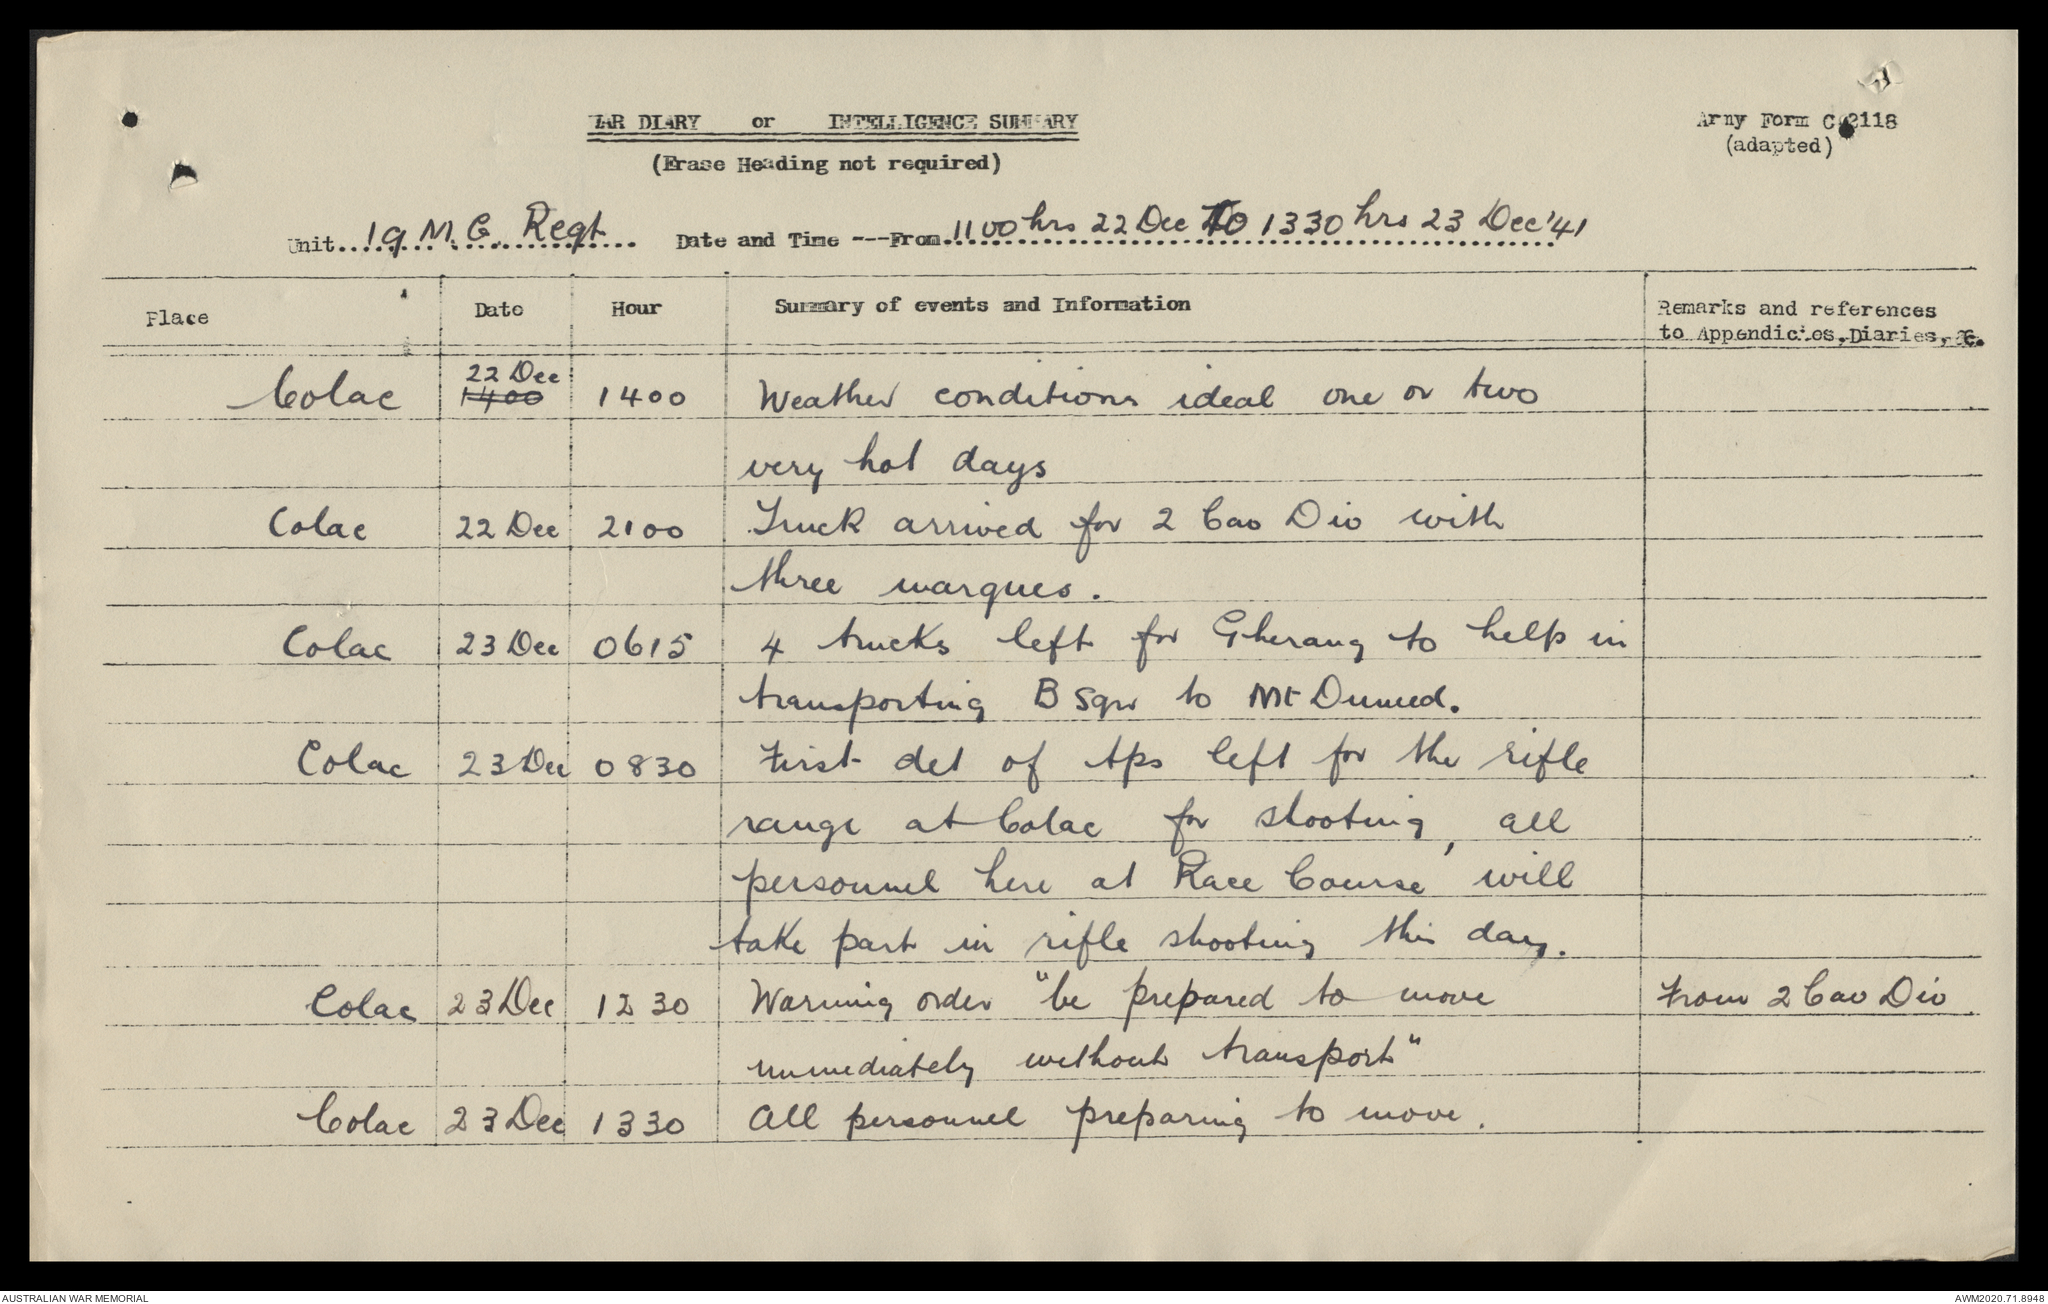 WAR DIARY or INTELLIGENCE SUMMARY
(Erase Heading not required)
Army Form C 2118
(adapted)
Unit 19 M.G. Regt Date and Time ---From 1100 hrs 22 Dec TO 1330 hrs 23 Dec '41
Place Date Hour Summary of events and Information Remarks and references
to Appendicies, Diaries, &c.
22 Dec
Colac 1400 1400 Weather conditions ideal one or two
very hot days
Colac 22 Dec 2100 Truck arrived for 2 Cav Div with
three marques.
Colac 23 Dec 0615 4 trucks left for Gherang to help in
transporting B Sqn to Mt Duneed.
Colac 23 Dec 0830 First det of tps left for the rifle
range at Colac for shooting, all
personnel here at Race Course will
take part in rifle shooting this day.
Colac 23 Dec 1230 Warning order "be prepared to move From 2 Cav Div
immediately without transport"
Colac 23 Dec 1330 All personnel preparing to move.
AUSTRALIAN WAR MEMORIAL AWM2020.71.8948